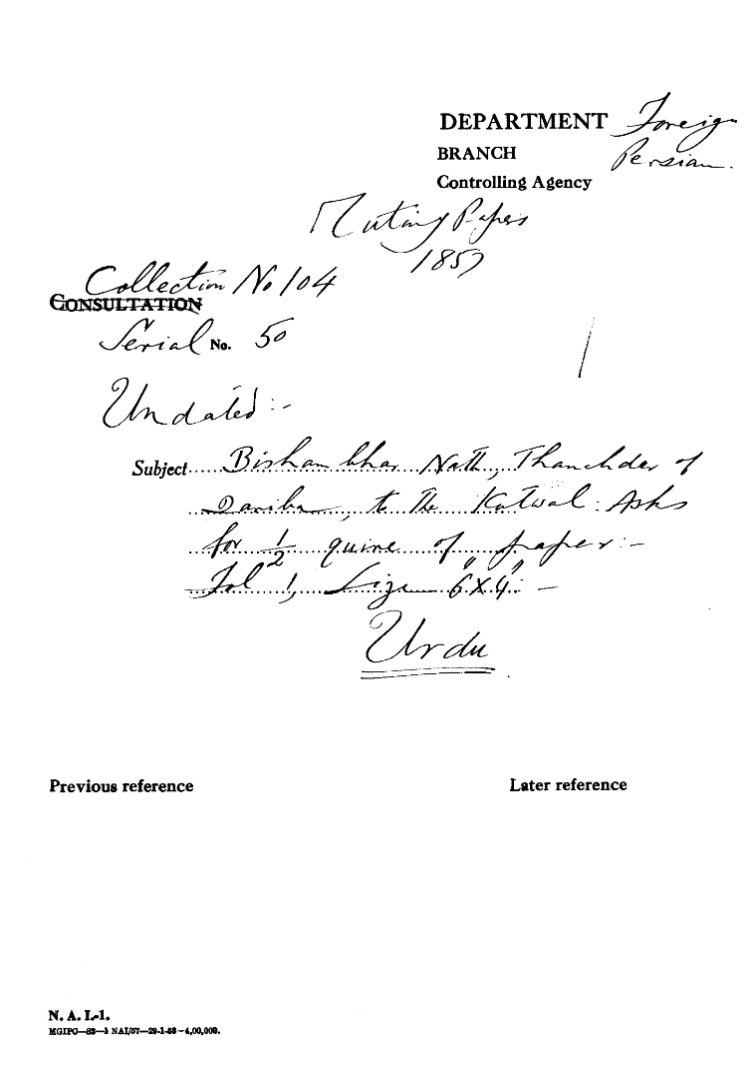 DEPARTMENT Foreign
BRANCH Persian.
Controlling Agency
Mutiny Papers
1857
Collection No 104
CONSULTATION
Serial No. 50
Undated:-
Subject Bishambhar Nath, Thanahdar of
Dariba, to the Kotwal: Asks
for 1/2 quire of paper:-
Fol 1, Size 6"x4":-
Urdu
Previous reference Later reference
N. A. I.-1.
MGIPC—S3—1 NAI/57—29-1-58—4,00,000.